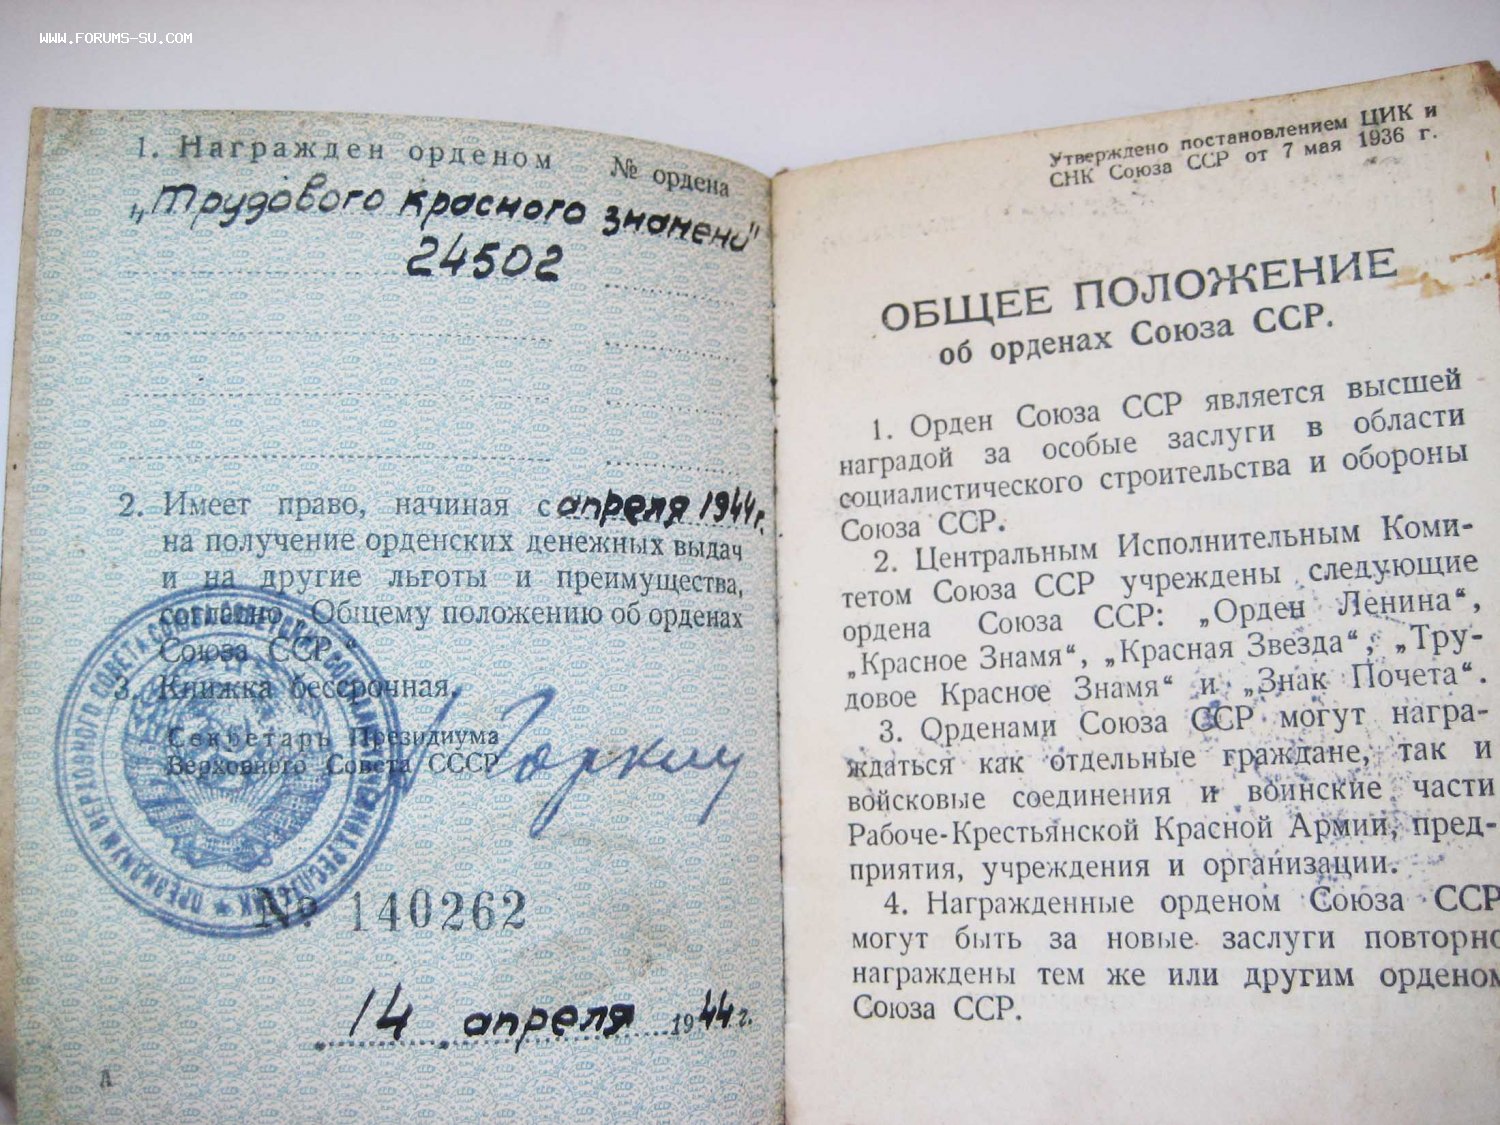 WWW.FORUMS-SU.COM
1. Награжден орденом № ордена
„Трудового красного знамени"
24502
2. Имеет право, начиная с апреля 1944 г.
на получение орденских денежных выдач
и на другие льготы и преимущества,
согласно „Общему положению об орденах
Союза ССР."
3. Книжка бессрочная.
Секретарь Президиума
Верховного Совета СССР
Горкин
ПРЕЗИДИУМ ВЕРХОВНОГО СОВЕТА СОЮЗА СОВЕТСКИХ СОЦИАЛИСТИЧЕСКИХ РЕСПУБЛИК
№ 140262
14 апреля 1944 г.
А
Утверждено постановлением ЦИК и
СНК Союза ССР от 7 мая 1936 г.
ОБЩЕЕ ПОЛОЖЕНИЕ
об орденах Союза ССР.
1. Орден Союза ССР является высшей
наградой за особые заслуги в области
социалистического строительства и обороны
Союза ССР.
2. Центральным Исполнительным Коми-
тетом Союза ССР учреждены следующие
ордена Союза ССР: „Орден Ленина“,
„Красное Знамя“, „Красная Звезда“, „Тру-
довое Красное Знамя“ и „Знак Почета“.
3. Орденами Союза ССР могут награ-
ждаться как отдельные граждане, так и
войсковые соединения и воинские части
Рабоче-Крестьянской Красной Армии, пред-
приятия, учреждения и организации.
4. Награжденные орденом Союза ССР
могут быть за новые заслуги повторно
награждены тем же или другим орденом
Союза ССР.